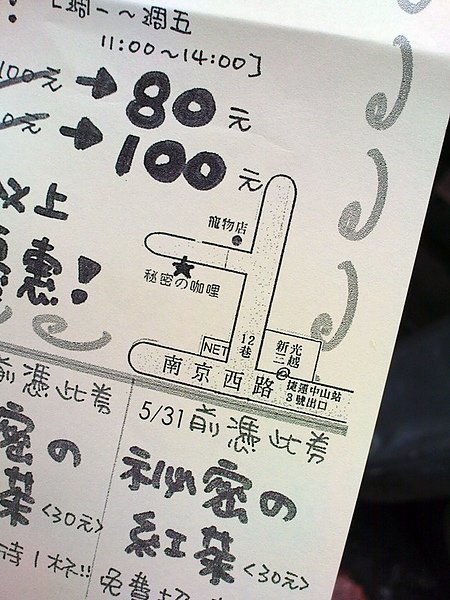 [週一～週五
11:00～14:00]
100元 → 80元
元 → 100元
以上
惠!
寵物店
秘密の咖哩
NET
12巷
新光三越
南京西路
捷運中山站
3號出口
前憑此券
5/31前憑此券
密の
茶<30元>
祕密の
紅茶<30元>
時1杯!!
免費